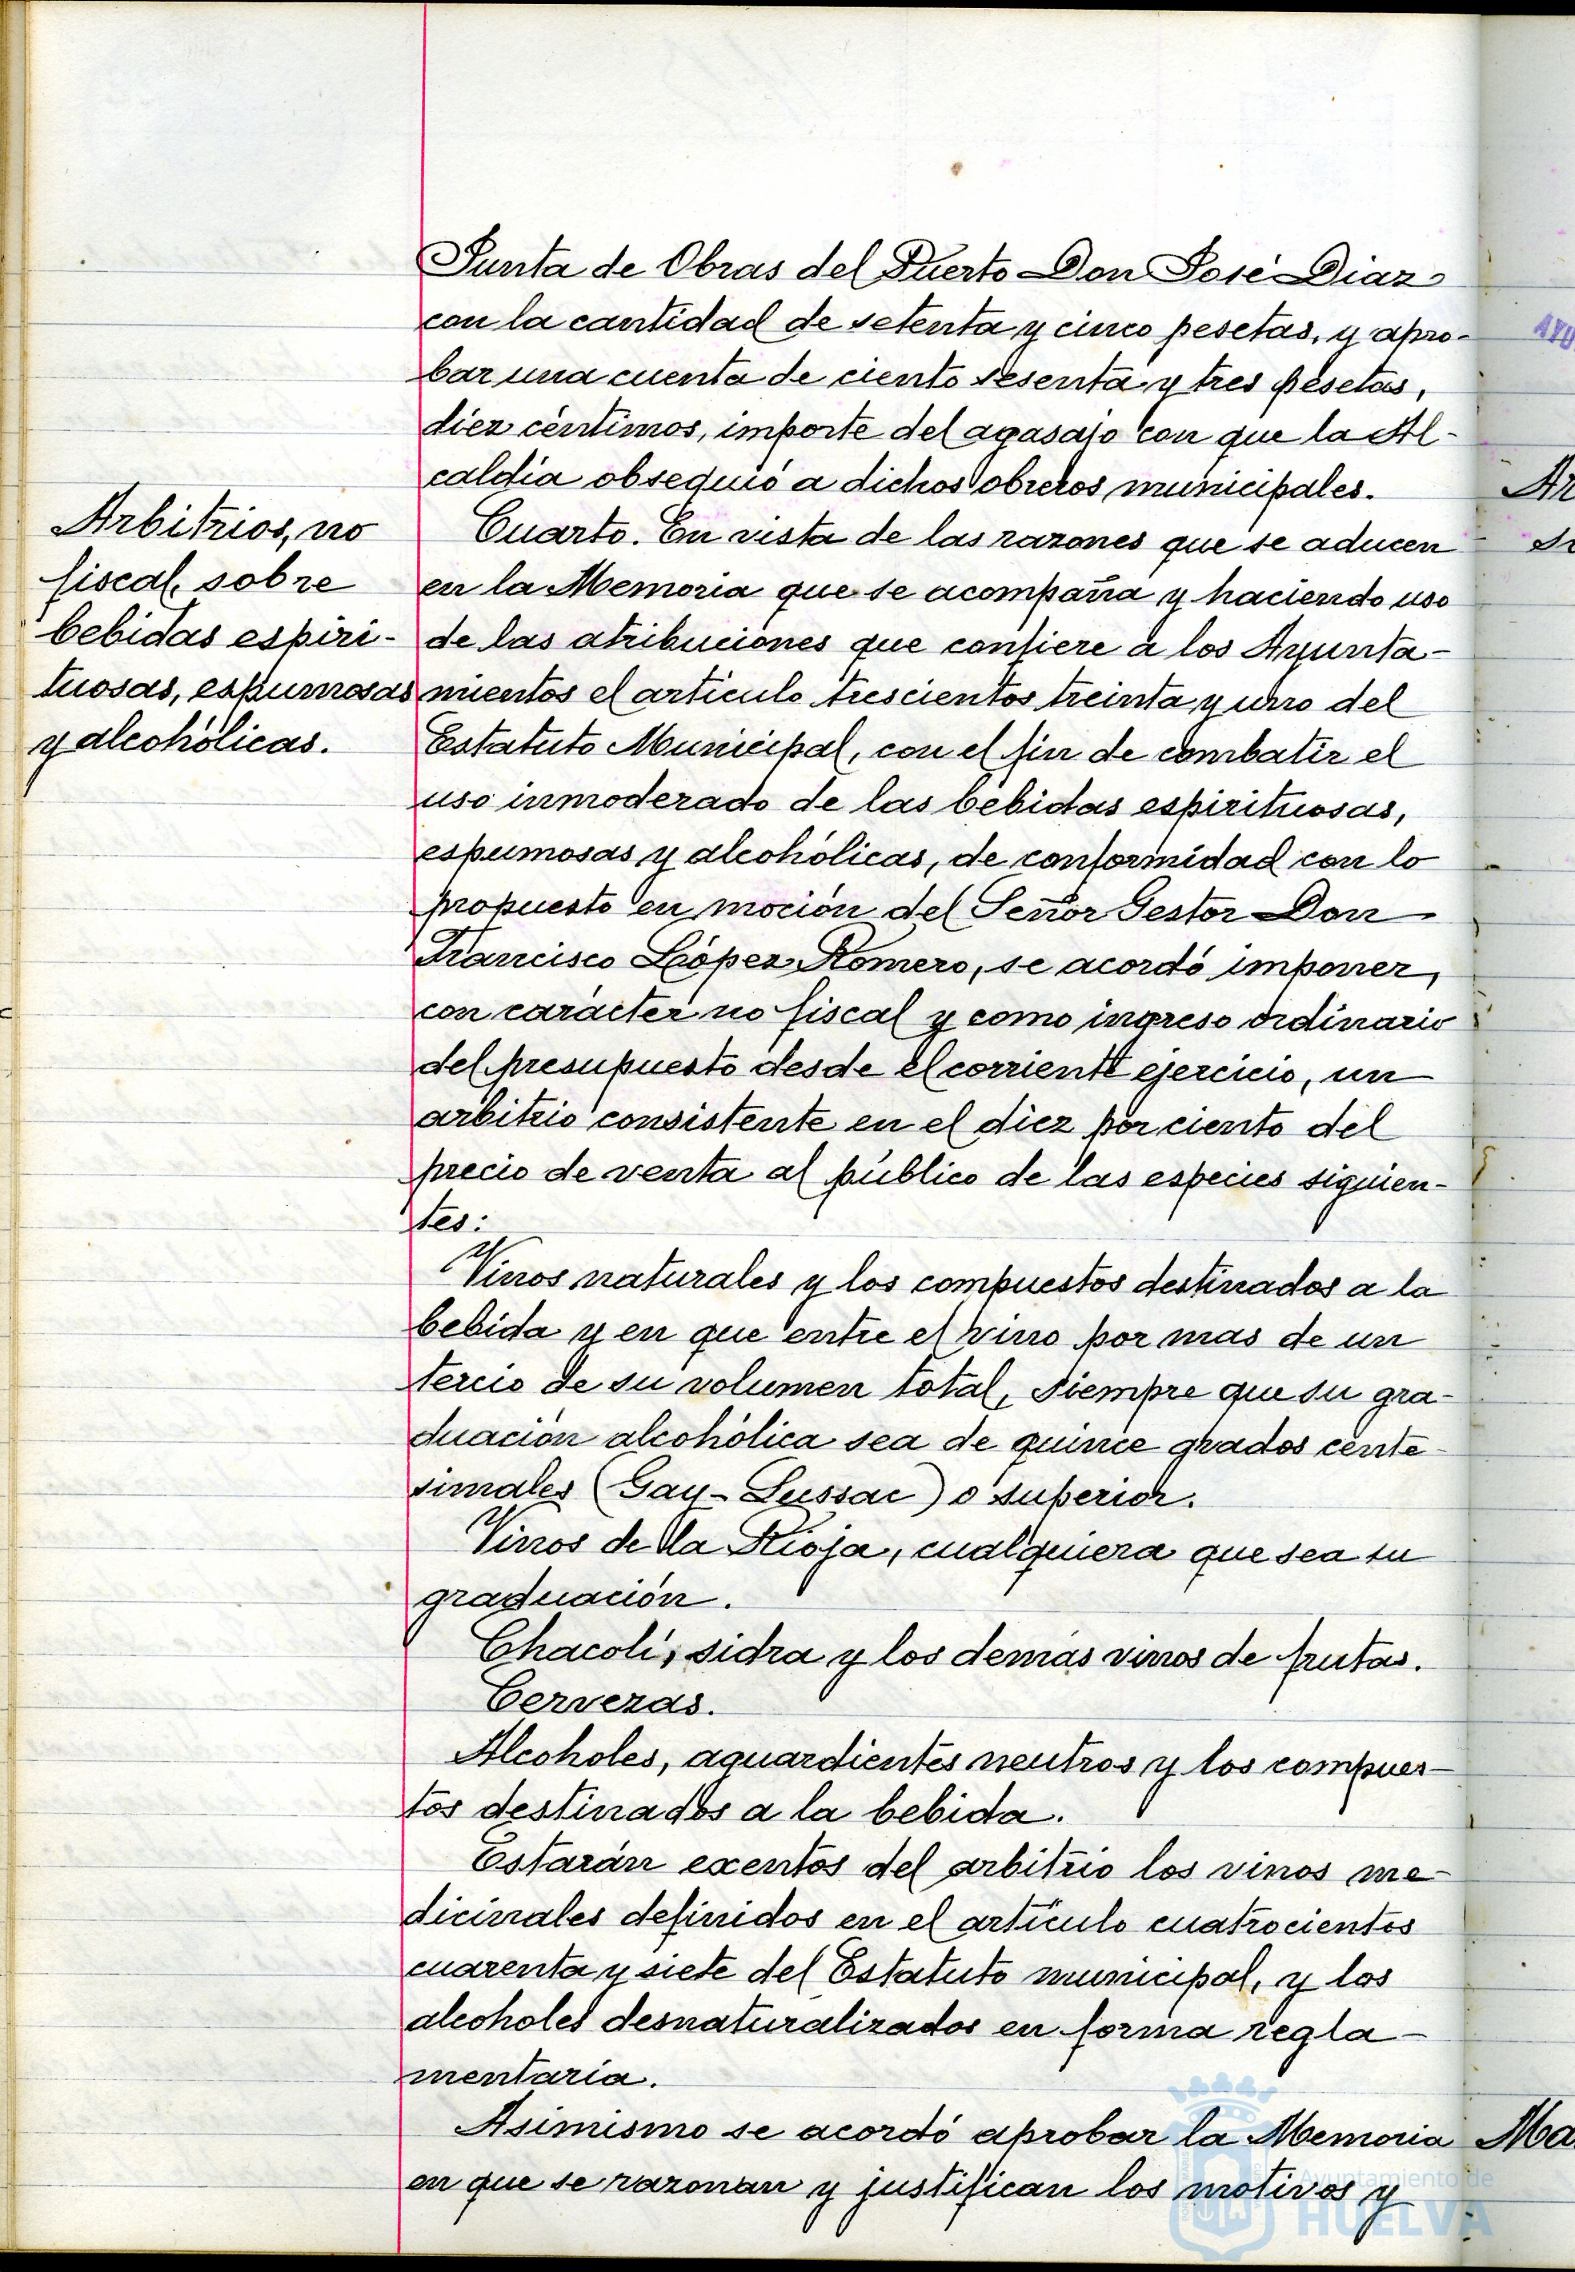 Junta de Obras del Puerto Don José Diaz
con la cantidad de setenta y cinco pesetas, y apro-
bar una cuenta de ciento sesenta y tres pesetas,
diez céntimos, importe del agasajo con que la Al-
caldía obsequió a dichos obreros municipales.
Arbitrios, no
fiscal, sobre
bebidas espiri-
tuosas, espumosas
y alcohólicas.
Cuarto. En vista de las razones que se aducen
en la Memoria que se acompaña y haciendo uso
de las atribuciones que confiere a los Ayunta-
mientos el artículo trescientos treinta y uno del
Estatuto Municipal, con el fin de combatir el
uso inmoderado de las bebidas espirituosas,
espumosas y alcohólicas, de conformidad con lo
propuesto en moción del Señor Gestor Don
Francisco López Romero, se acordó imponer,
con carácter no fiscal y como ingreso ordinario
del presupuesto desde el corriente ejercicio, un
arbitrio consistente en el diez por ciento del
precio de venta al público de las especies siguien-
tes:
Vinos naturales y los compuestos destinados a la
bebida y en que entre el vino por mas de un
tercio de su volumen total, siempre que su gra-
duación alcohólica sea de quince grados cente-
simales (Gay-Lussac) o superior.
Vinos de la Rioja, cualquiera que sea su
graduación.
Chacolí, sidra y los demás vinos de frutas.
Cervezas.
Alcoholes, aguardientes neutros y los compues-
tos destinados a la bebida.
Estarán exentos del arbitrio los vinos me-
dicinales definidos en el artículo cuatrocientos
cuarenta y siete del Estatuto municipal, y los
alcoholes desnaturalizados en forma regla-
mentaria.
Asimismo se acordó aprobar la Memoria
en que se razonan y justifican los motivos y
Ayuntamiento de
HUELVA